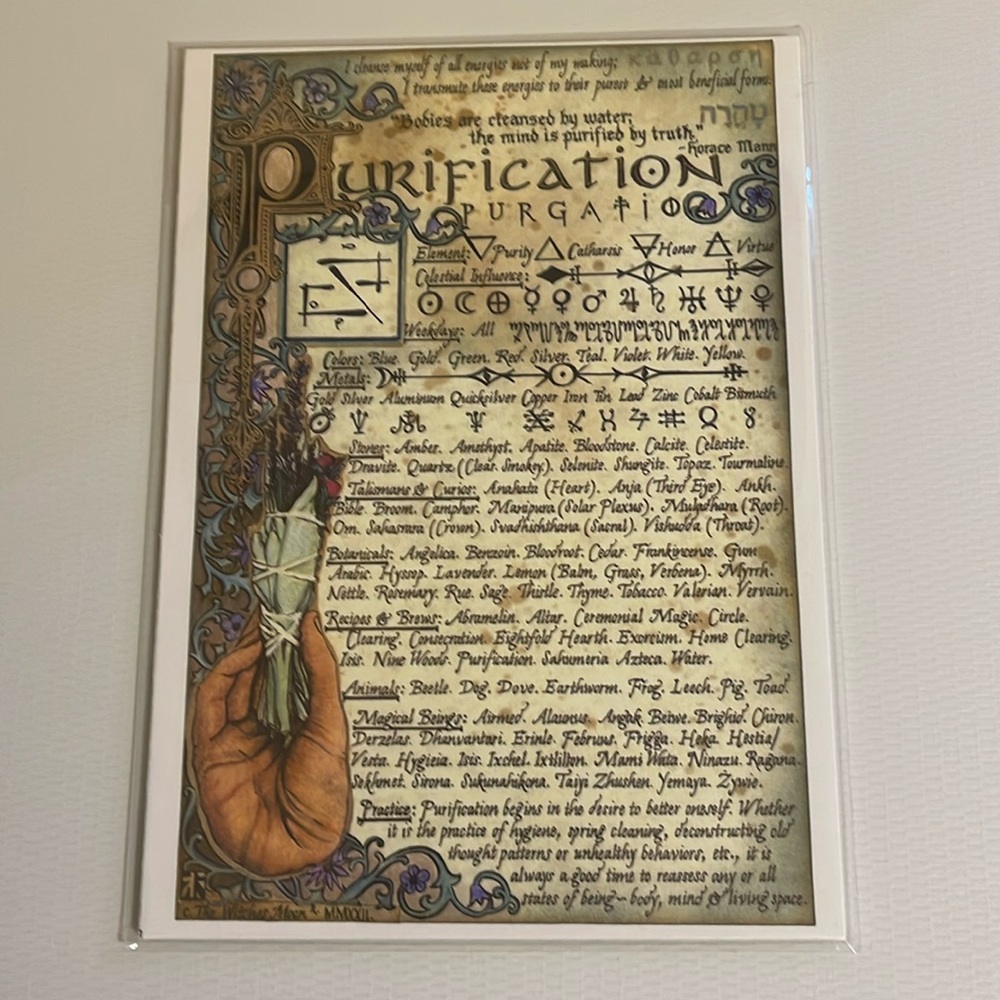 I cleanse myself of all energies not of my making;
κάθαρση
I transmute these energies to their purest & most beneficial forms.
טָהֳרָה
"Bodies are cleansed by water;
the mind is purified by truth."
-Horace Mann
Purification
PURGATIO
Element: Purity Catharsis Honor Virtue
Celestial Influence:
☉ ☾ ⊕ ☿ ♀ ♂ ♃ ♄ ♅ ♆ ♇
Weekdays: All
Colors: Blue. Gold. Green. Red. Silver. Teal. Violet. White. Yellow.
Metals:
Gold Silver Aluminum Quicksilver Copper Iron Tin Lead Zinc Cobalt Bismuth
Stones: Amber. Amethyst. Apatite. Bloodstone. Calcite. Celestite.
Dravite. Quartz (Clear. Smokey). Selenite. Shungite. Topaz. Tourmaline.
Talismans & Curios: Anahata (Heart). Anja (Third Eye). Ankh.
Bible. Broom. Camphor. Manipura (Solar Plexus). Muladhara (Root).
Om. Sahasrara (Crown). Svadhishthana (Sacral). Vishudda (Throat).
Botanicals: Angelica. Benzoin. Bloodroot. Cedar. Frankincense. Gum
Arabic. Hyssop. Lavender. Lemon (Balm, Grass, Verbena). Myrrh.
Nettle. Rosemary. Rue. Sage. Thistle. Thyme. Tobacco. Valerian. Vervain.
Recipes & Brews: Abramelin. Altar. Ceremonial Magic. Circle.
Clearing. Consecration. Eightfold Hearth. Exorcism. Home Clearing.
Isis. Nine Woods. Purification. Sahumeria Azteca. Water.
Animals: Beetle. Dog. Dove. Earthworm. Frog. Leech. Pig. Toad.
Magical Beings: Airmed. Alaunus. Angak. Beiwe. Brighid. Chiron.
Derzelas. Dhanvantari. Erinle. Februus. Frigga. Heka. Hestia/
Vesta. Hygieia. Isis. Ixchel. Ixtlilton. Mami Wata. Ninazu. Ragana.
Sekhmet. Sirona. Sukunahikona. Taiyi Zhushen. Yemaya. Żywie.
Practice: Purification begins in the desire to better oneself. Whether
it is the practice of hygiene, spring cleaning, deconstructing old
thought patterns or unhealthy behaviors, etc., it is
always a good time to reassess any or all
states of being~ body, mind & living space.
c. The Witches Moon & MMXXII.